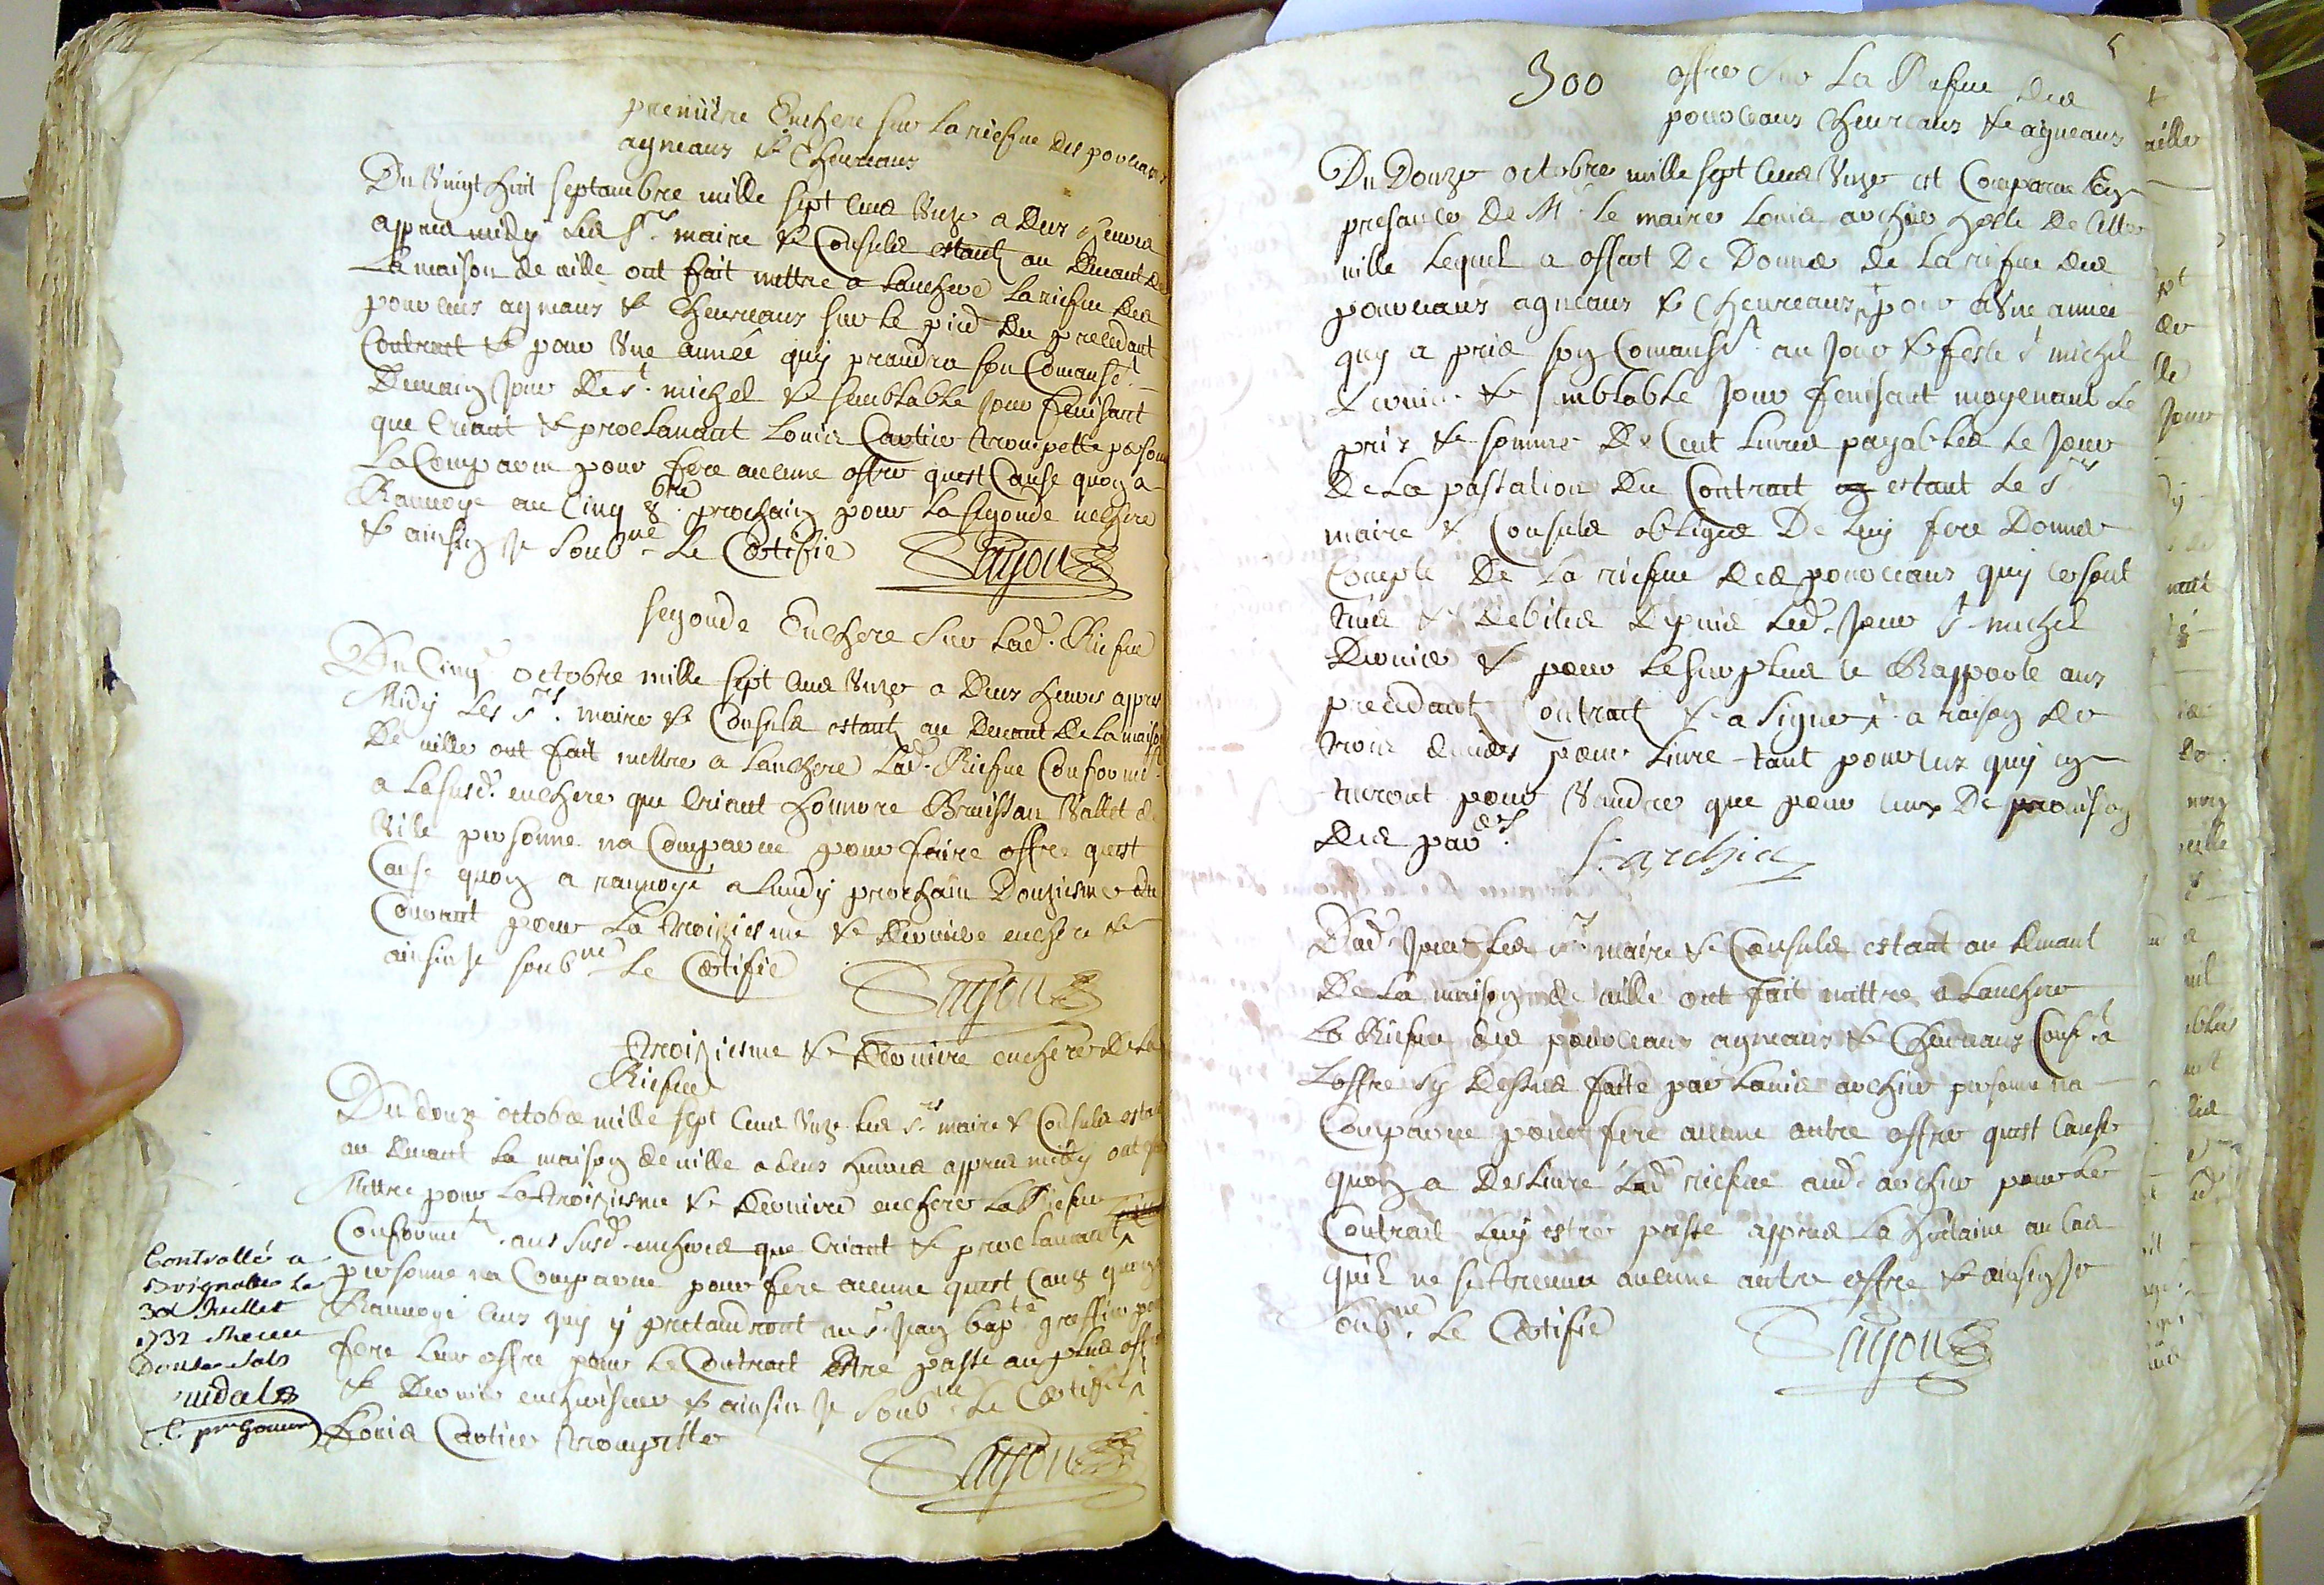 premiere Enchere sur la riefve des pourceaux
agneaux & Chevreaux
Du Vingt huit septambre mille sept Cens Unze a deux heures
appres midy les Srs. maire & Consuls estant au devant de
La maison de ville ont fait mettre a lanchere la riefve des
pourceaus agneaus & Chevreaus sur le pied du precedant
Contrat & pour Une année quy prandra son Comansemt.
Demain Jour de St. michel & semblable jour fenissant
que Criant & proclamant Louis Cartier trompette personne
La Comparue pour fere aucune offre quest Cause quon a
Ranvoye au Cinq 8bre prochain pour la segonde enchere
& ainsin Je soubné le Certifie Sayou
segonde Enchere sur lad. Riefve
Du Cinq octobre mille sept Cens Unze a deux heures appres
Midy Les Srs. maire & Consuls estant au devant de la maison
De ville ont fait mettre a lanchere lad. Riefve Conformemt.
a la susd. enchere que Criant honnore Bruissan Vallet de
Ville personne na Comparue pour faire offre quest
Cause quon a ranvoyé a Lundy prochain Douziesme du
Courant pour La troiziesme & derniere enchere &
ainsin Je soubné Le Certifie Sayou
troiziesme & Derniere enchere de la
Riefve
Du douze octobre mille sept Cens Unze les Srs maire & Consuls estant
au devant la maison de ville a deus heures appres midy ont
Mettre pour la troiziesme & derniere enchere la Riefve
Conformemt. aus susd. encheres que Criant & proclamant
personne na Comparue pour fere aucune quest Cause quon
Ranvoye Ceus quy y pretandront au Sr. Jean bapte. greffier pour
fere leur offre pour le Contrat Estre passe au plus offrant
& Dernier encherisseur & ainsin Je soubné Le Certifie
Louis Cartier trompette
Sayou
Controllé a
Brignolles le
Juillet
1732
Douse sols
Vidal
300 offre sur La Riefve des
pourceaus Chevreaus & agneaus
Du Douze octobre mille sept Cens Unze est Comparu En
presance de M. le maire Louis archier hoste de Cette
ville Lequel a offert De Donner de la riefve des
pourceaus agneaus & Chevreaus pour Une année
quy a pris son Comansemt. au Jour & feste St. michel
dernier & semblable jour fenissant moyenant le
pris & somme De Cent Livres payables le jour
De La passation du Contrat estant le Srs
maire & Consuls obligés De luy fere Donner
Compte De la riefve des pourceaus quy se sont
tués & debités Depuis led. Jour St. michel
Dernier & pour le surplus se Rapporte aus
precedants Contrats & a signe a raison de
trois deniers pour Livre tant pour Ceux quy en
tueront pour Vandre que pour Ceux De provision
des parers. L. archier
Dud. Jour les Srs. maire & Consuls estant au devant
De La maison de ville ont fait mettre a Lanchere
La Riefve des pourceaus agneaus & Chevreaus Conf. a
Loffre sy Dessus faite par Louis archier personne na
Comparue pour fere aucune autre offre quest Cause
quon a Deslivré Lad. riefve aud. archier pour le
Contrat Luy estre passe appres La huitaine au Cas
quil ne se treuve aucune autre offre & ainsin Je
soubné. Le Certifie Sayou